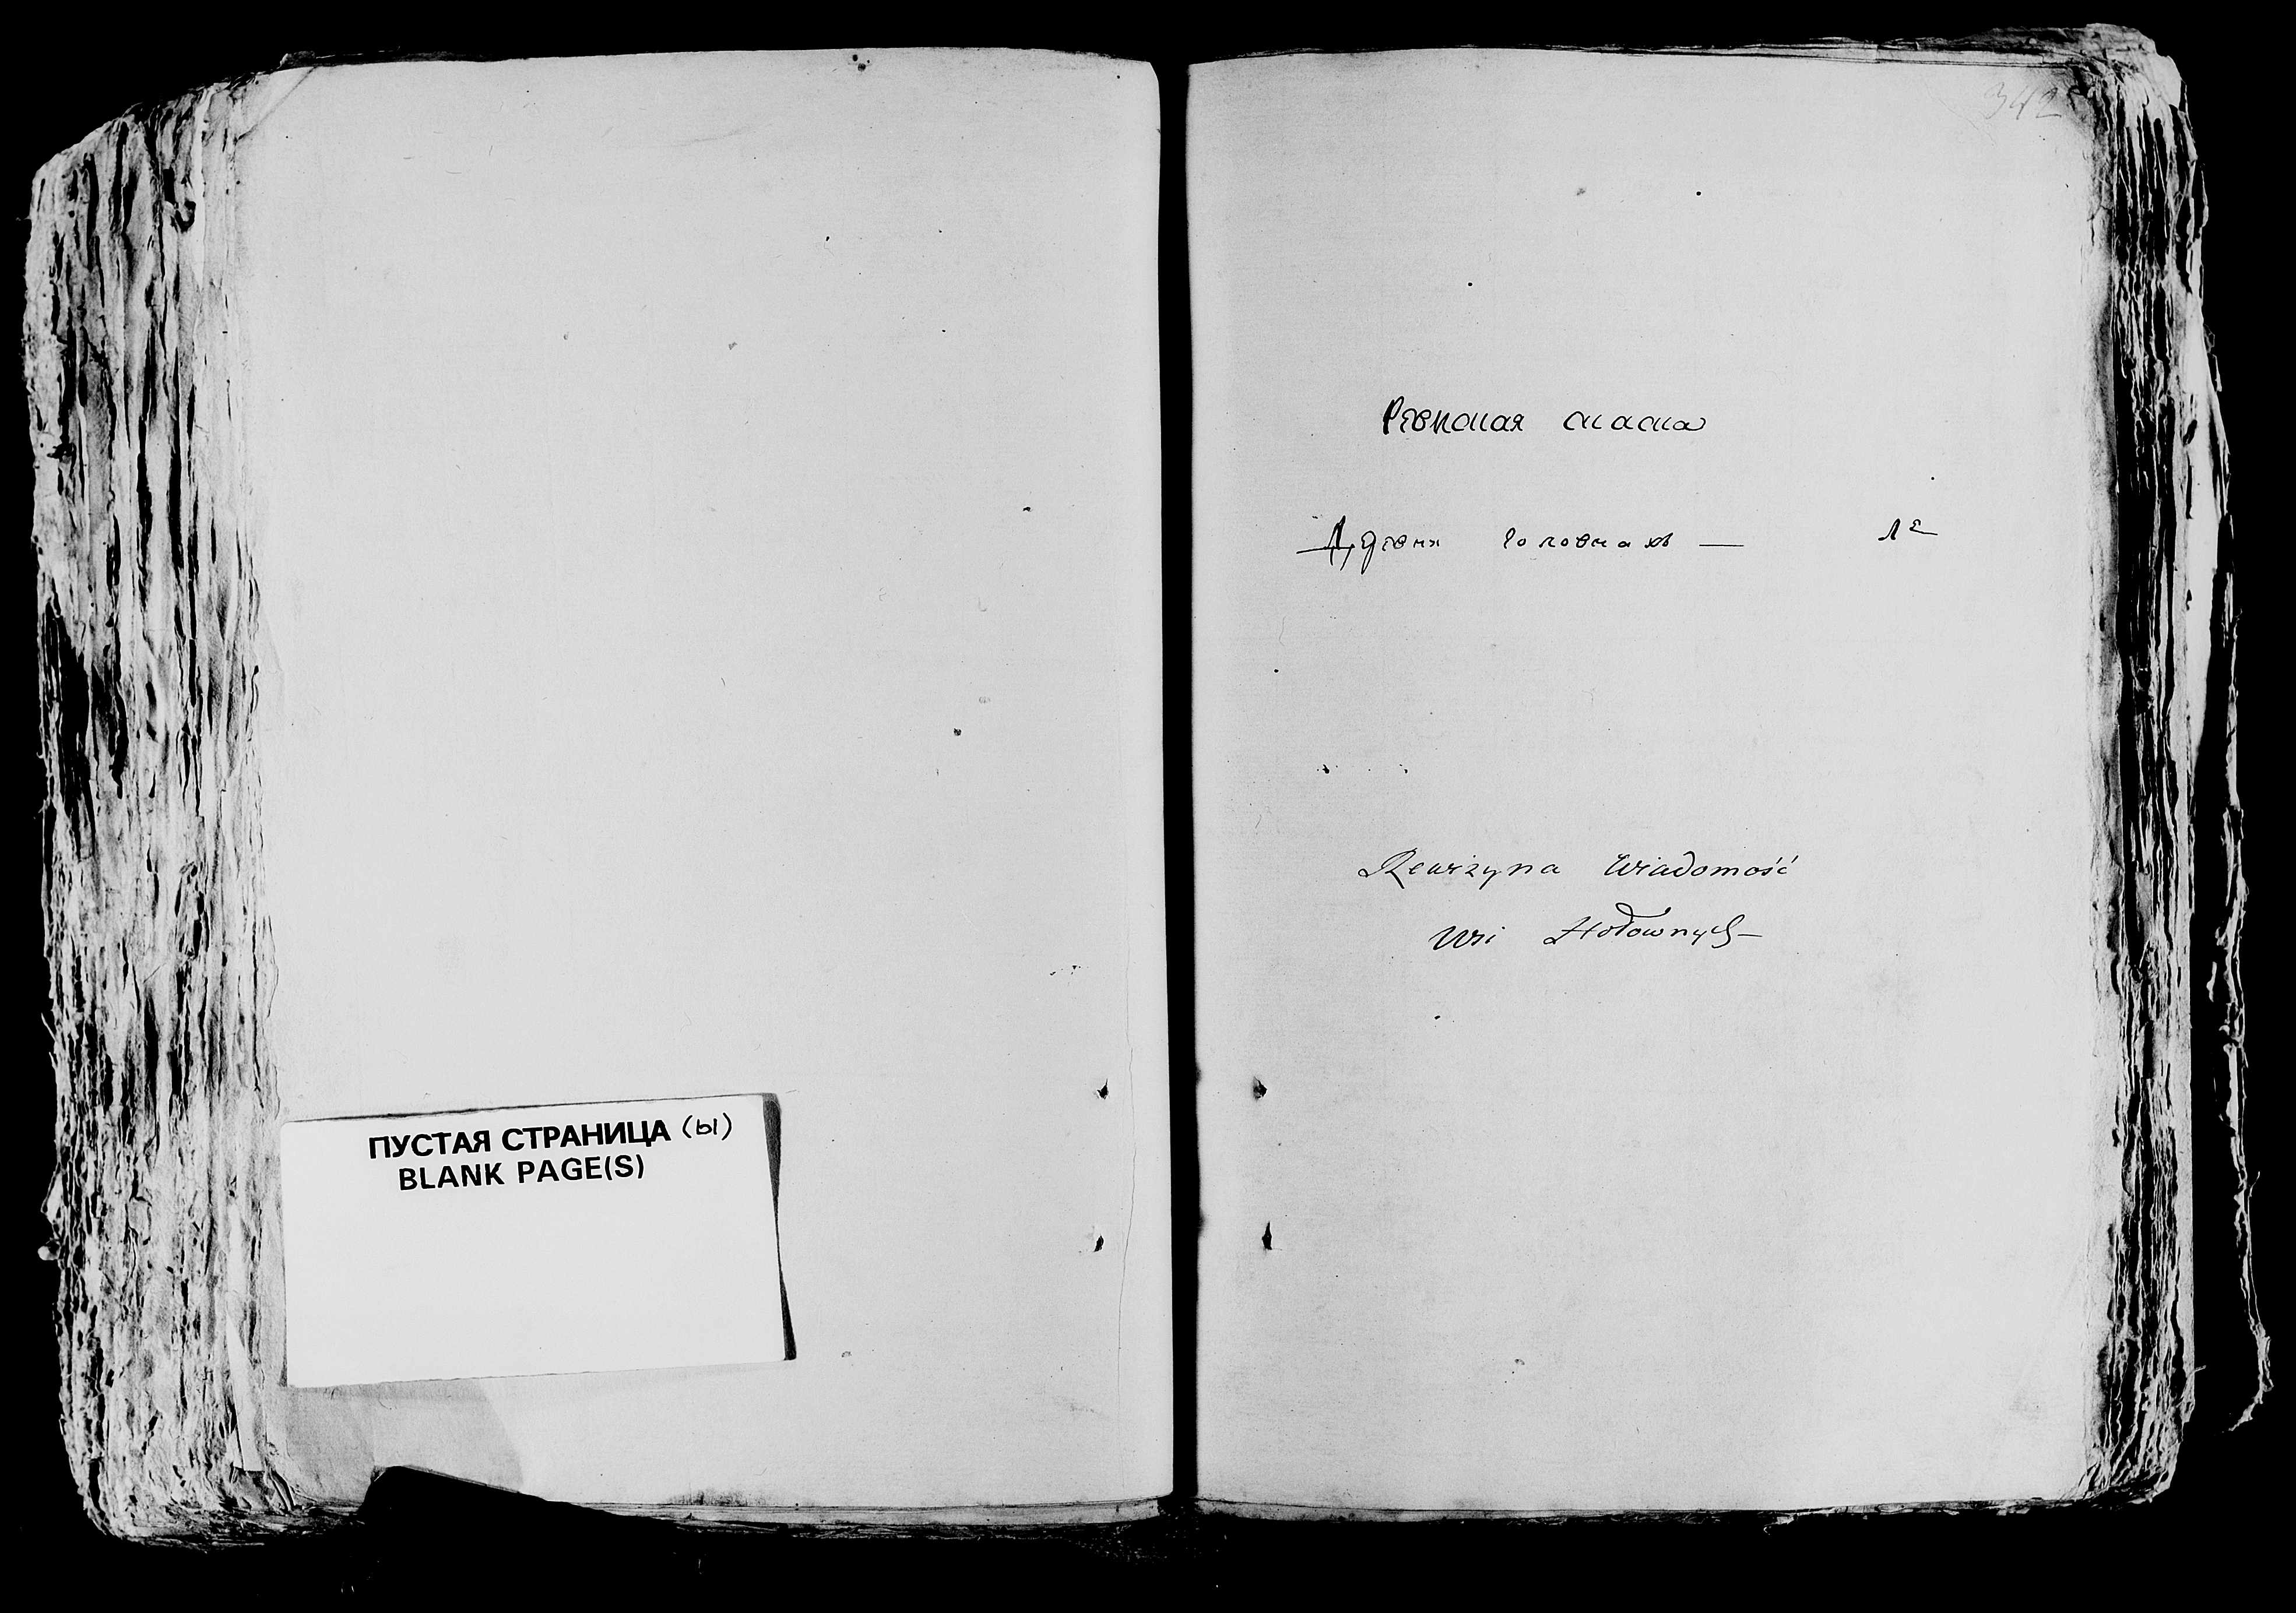 ПУСТАЯ СТРАНИЦА (ы)
BLANK PAGE(S)
342
Ревиская скаска
Деревня Головнахъ —
Rewizyna Wiadomość
Wsi Hołownych —